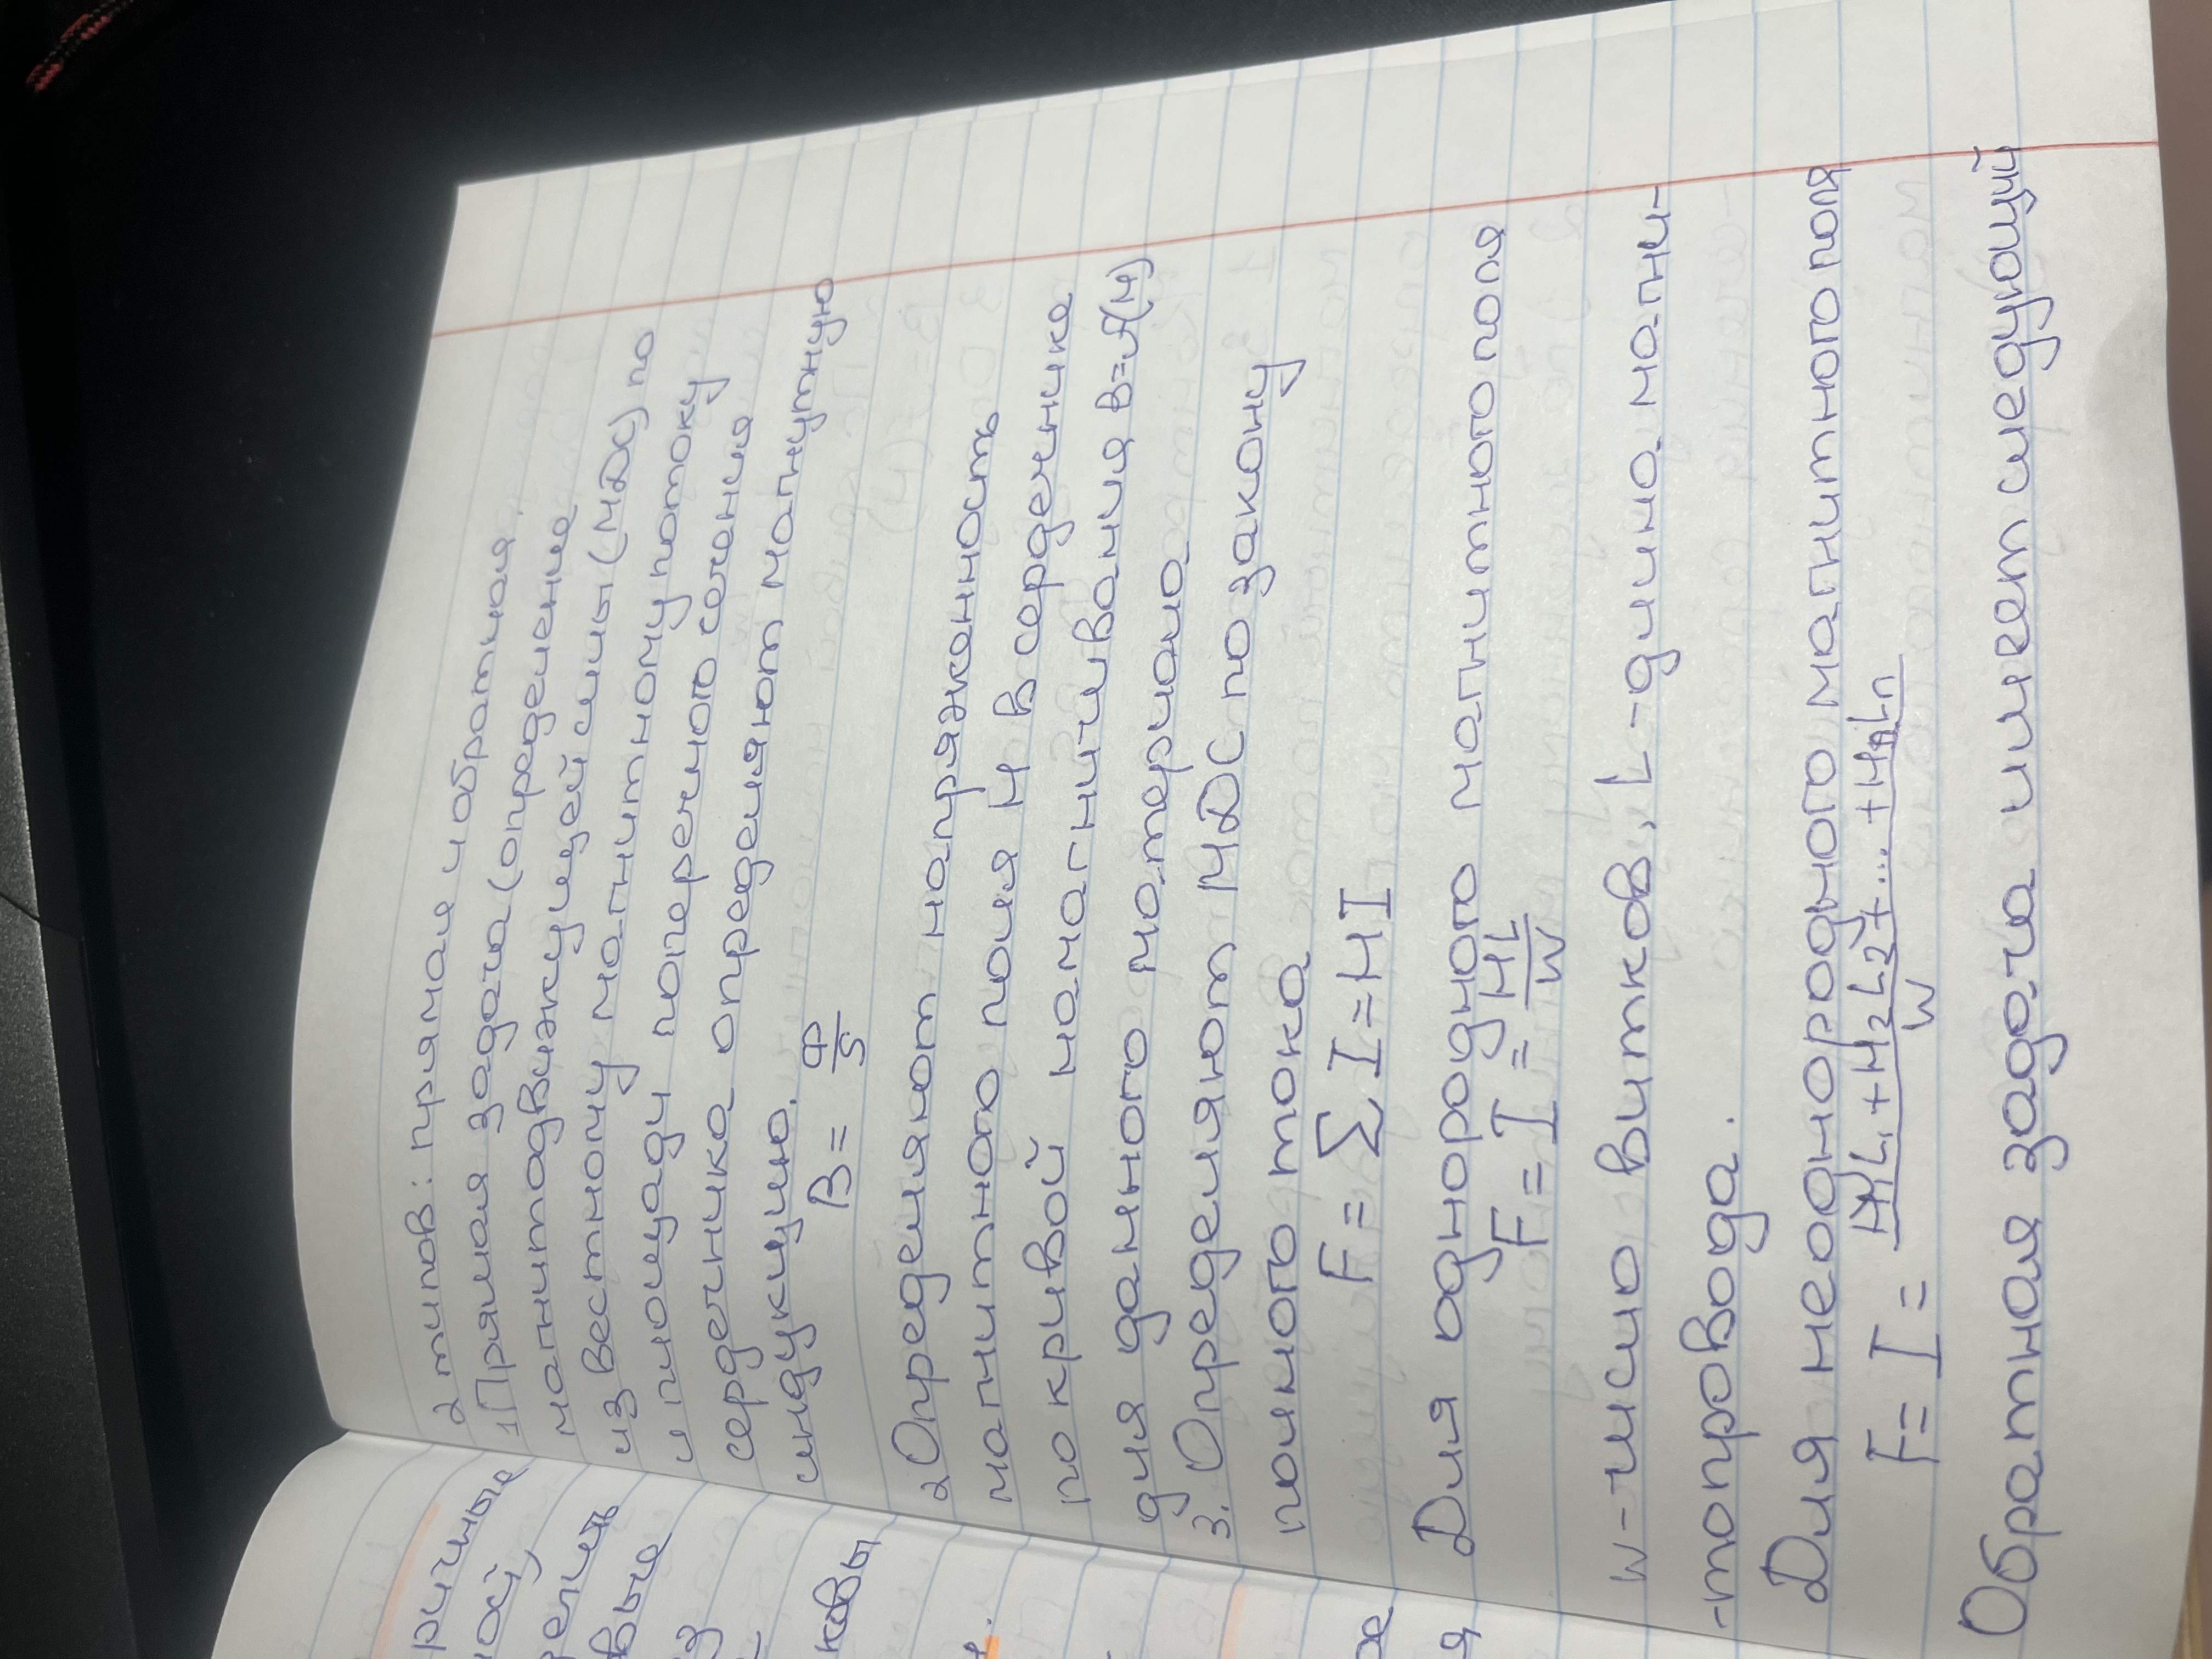 2 типов: прямая и обратная.
1 Прямая задача (определение
магнитодвижущей силы (МДС) по
известному магнитному потоку
и площади поперечного сечения
сердечника определяют магнутную
индукцию.
B = Ф/S
2 Определяют напряженность
магнитного поля H в сердечнике
по кривой намагничивания B=f(H)
для данного материала
3. Определяют МДС по закону
полного тока
F = Σ I = H I
Для однородного магнитного поля
F = I = HL/W
W - число витков, L - длина магни-
-топровода.
Для неоднородного магнитного поля
F = I = H₁L₁+H₂L₂+...+HₙLₙ/W
Обратная задача имеет следующий
ковы